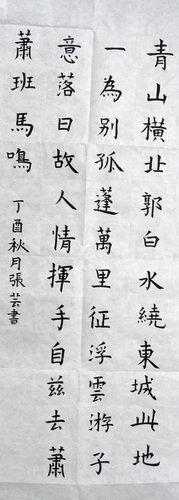 青山橫北郭白水繞東城此地
一為别孤蓬萬里征浮雲游子
意落日故人情揮手自兹去蕭
蕭班馬鳴
丁酉秋月張芸書